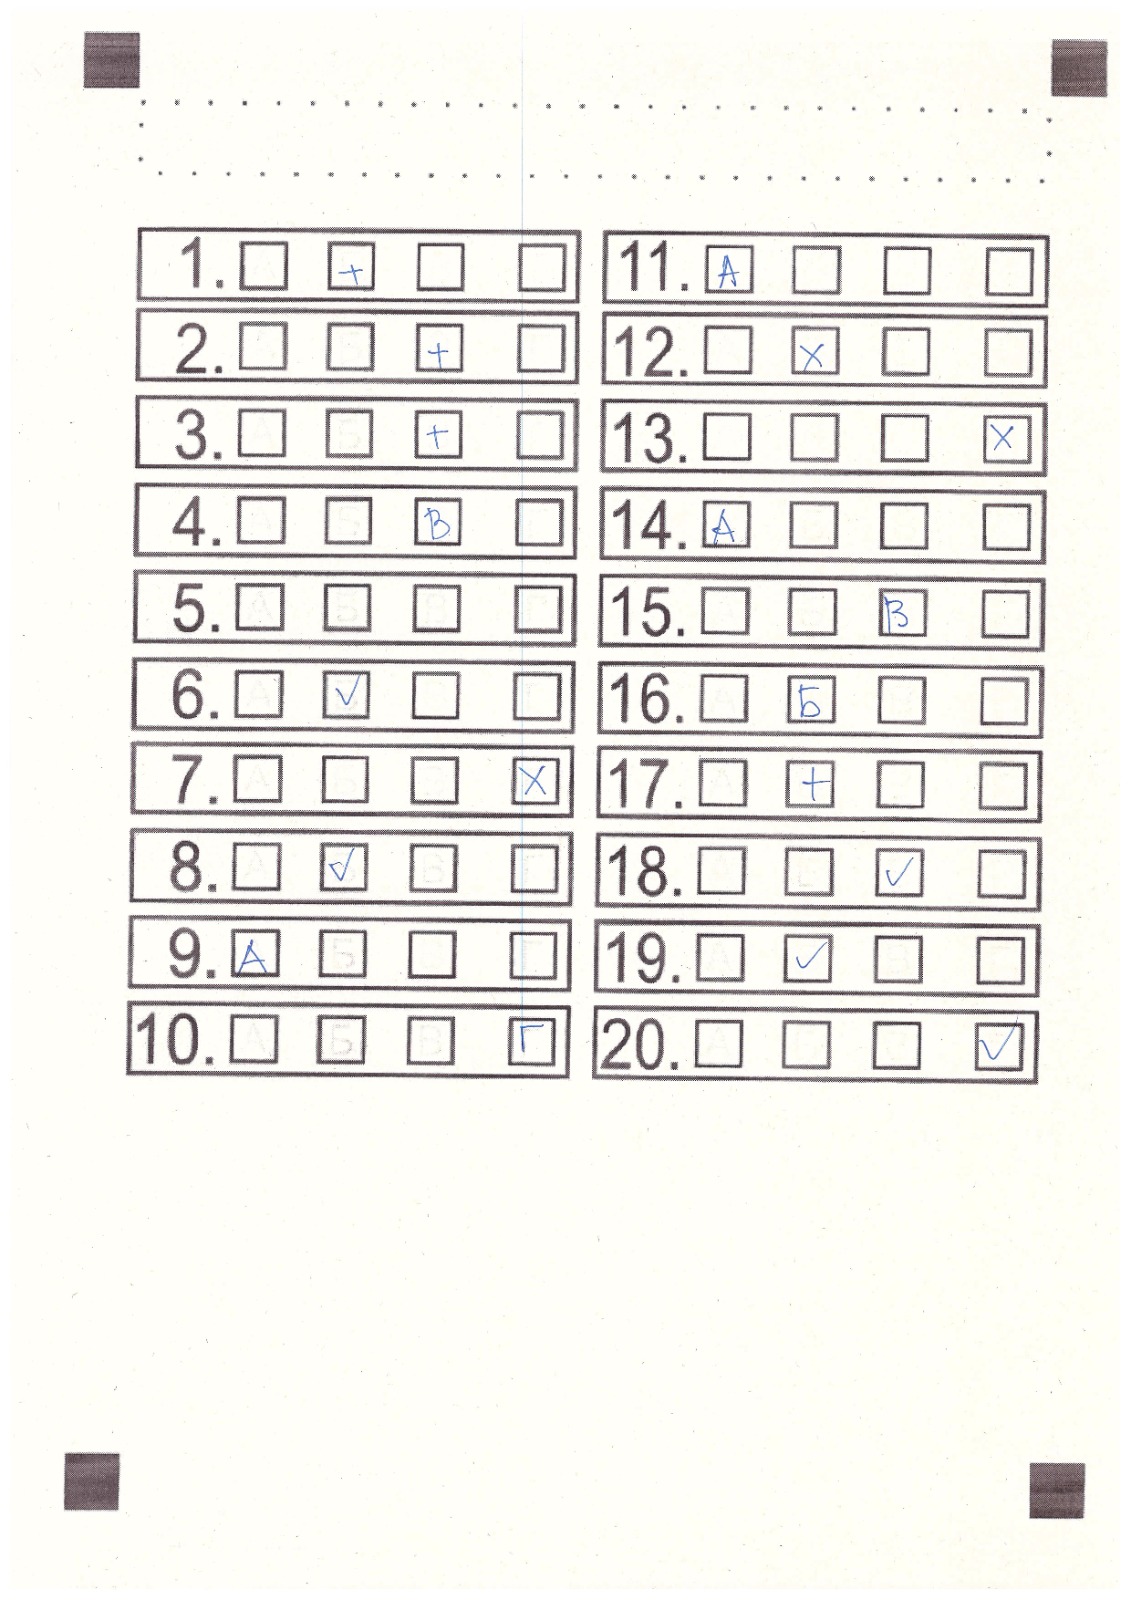 1. +
2. +
3. +
4. В
5.
6. ✓
7. X
8. ✓
9. А
10. Г
11. А
12. X
13. X
14. А
15. В
16. Б
17. +
18. ✓
19. ✓
20. ✓